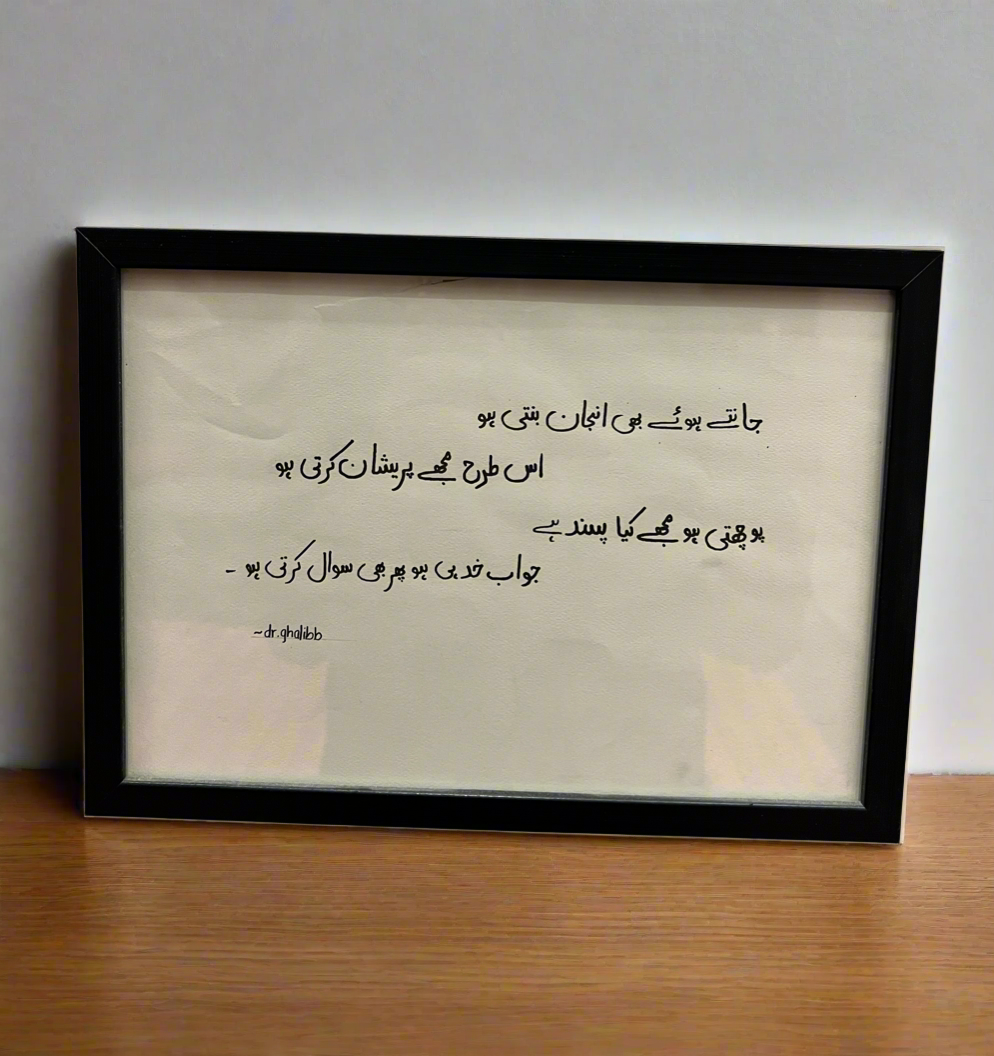 جانتے ہوئے بھی انجان بنتی ہو
اس طرح مجھے پریشان کرتی ہو
پوچھتی ہو مجھے کیا پسند ہے
جواب خد ہی ہو پھر بھی سوال کرتی ہو ۔
~dr.ghalibb